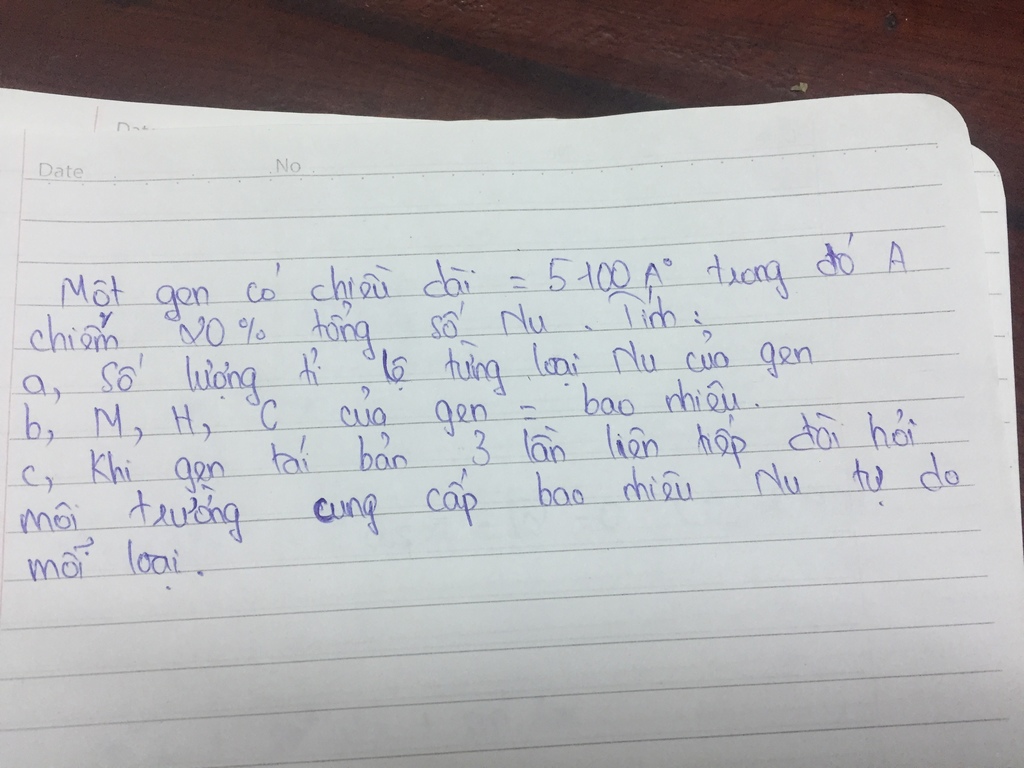 Date No
Một gen có chiều dài = 5100 A° trong đó A
chiếm 20% tổng số Nu. Tính:
a, Số lượng tỉ lệ từng loại Nu của gen
b, M, H, C của gen = bao nhiêu.
c, Khi gen tái bản 3 lần liên tiếp đòi hỏi
môi trường cung cấp bao nhiêu Nu tự do
mỗi loại.